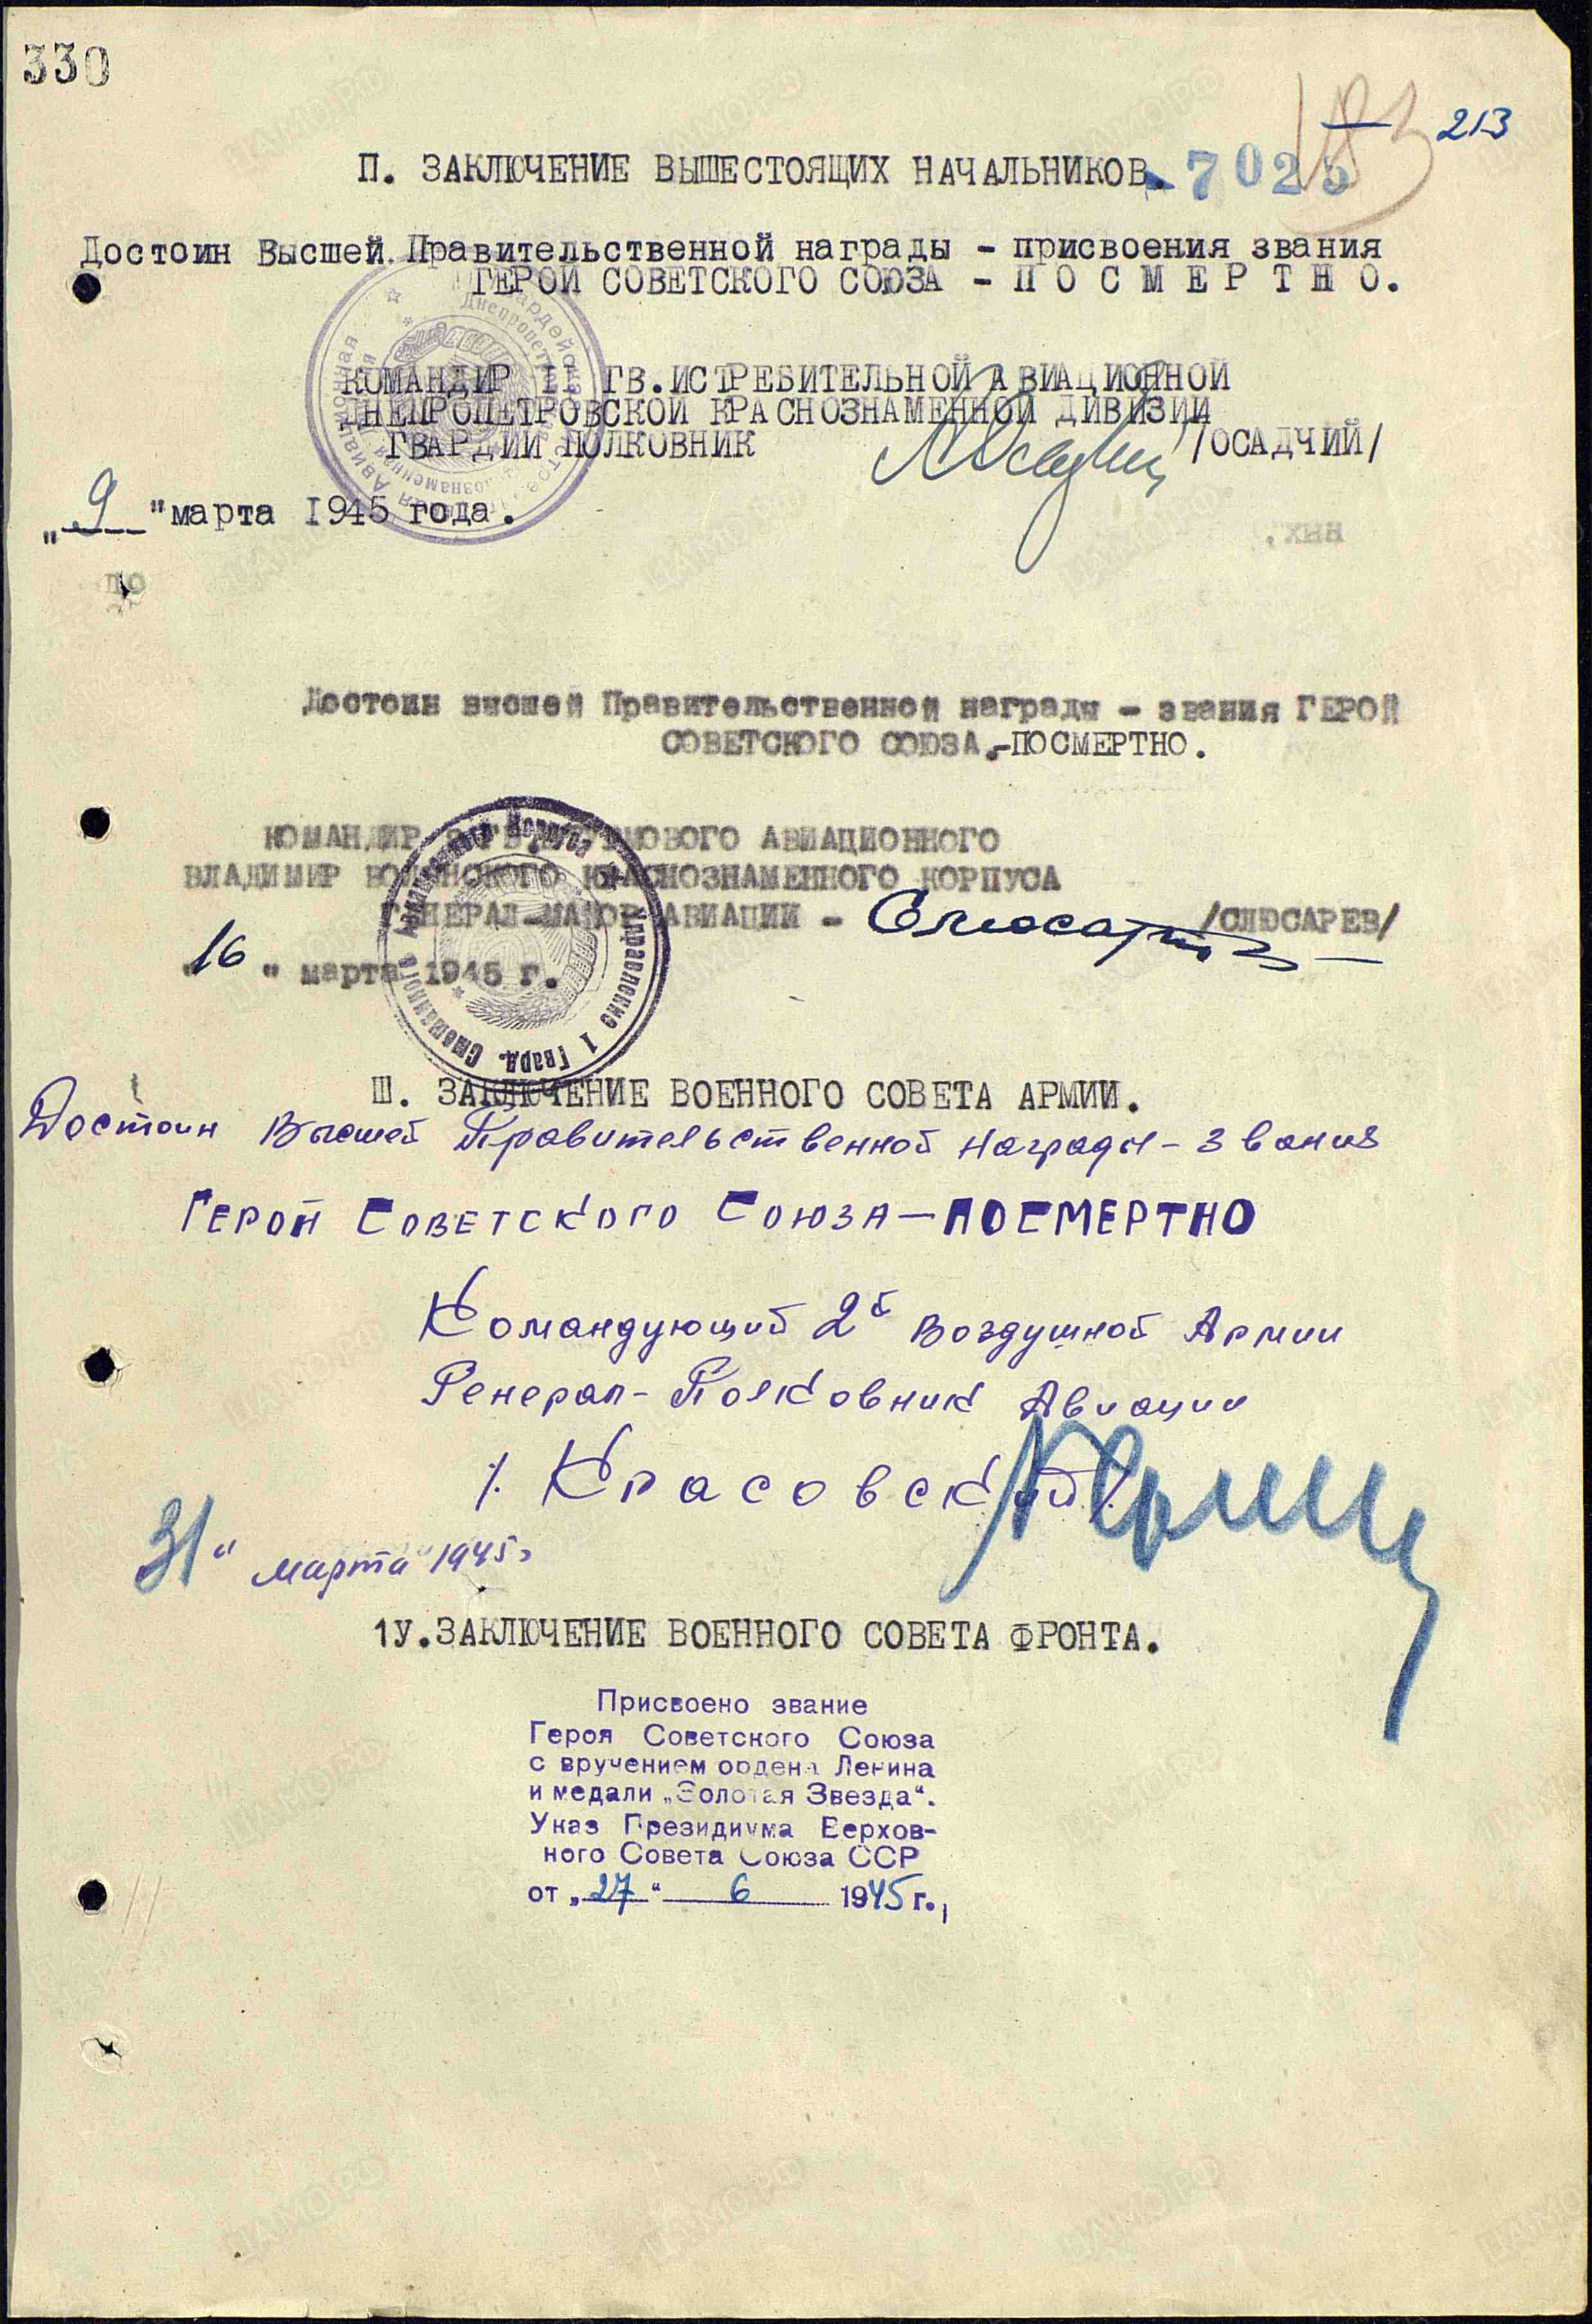 330
213
183
П. ЗАКЛЮЧЕНИЕ ВЫШЕСТОЯЩИХ НАЧАЛЬНИКОВ.
7025
Достоин Высшей Правительственной награды - присвоения звания
ГЕРОЙ СОВЕТСКОГО СОЮЗА - П О С М Е Р Т Н О.
КОМАНДИР 11 ГВ.ИСТРЕБИТЕЛЬНОЙ АВИАЦИОННОЙ
ДНЕПРОПЕТРОВСКОЙ КРАСНОЗНАМЕННОЙ ДИВИЗИИ
ГВАРДИИ ПОЛКОВНИК /ОСАДЧИЙ/
„ 9 " марта 1945 года.
Достоин высшей Правительственной награды - звания ГЕРОЙ
СОВЕТСКОГО СОЮЗА.-ПОСМЕРТНО.
КОМАНДИР АВИАЦИОННОГО
ВЛАДИМИР ВОЛЫНСКОГО КРАСНОЗНАМЕННОГО КОРПУСА
ГЕНЕРАЛ-МАЙОР АВИАЦИИ - Слюсарев /СЛЮСАРЕВ/
"16 " марта 1945 г.
Управление 1 Гвард. Смешанного Авиационного Корпуса
Ш. ЗАКЛЮЧЕНИЕ ВОЕННОГО СОВЕТА АРМИИ.
Достоин Высшей Правительственной Награды - звания
ГЕРОЙ СОВЕТСКОГО СОЮЗА — ПОСМЕРТНО
Командующий 2й Воздушной Армии
Генерал-Полковник Авиации
/. Красовский/.
31 " марта 1945г
1У.ЗАКЛЮЧЕНИЕ ВОЕННОГО СОВЕТА ФРОНТА.
Присвоено звание
Героя Советского Союза
с вручением ордена Ленина
и медали „Золотая Звезда“.
Указ Президиума Верхов-
ного Совета Союза ССР
от „27“ 6 1945 г.